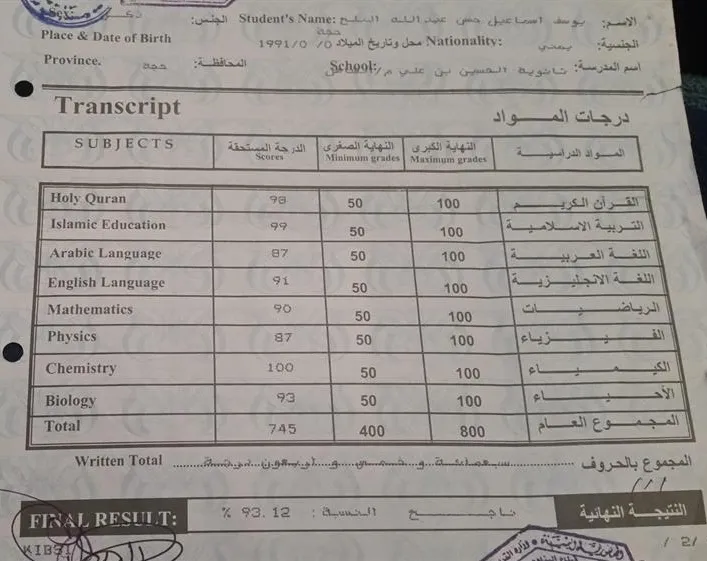 الاسم: يوسف اسماعيل حسن عبدالله Student's Name: الجنس: ذكر
الجنسية: يمني Nationality: محل وتاريخ الميلاد حجه 1991/0/0 Place & Date of Birth
اسم المدرسة: ثانوية الحسين بن علي School: المحافظة: حجه Province.
Transcript درجات المــواد
SUBJECTS الدرجة المستحقة Scores النهاية الصغرى Minimum grades النهاية الكبرى Maximum grades المــواد الدراسيــة
Holy Quran 98 50 100 القــرآن الكريــم
Islamic Education 99 50 100 التربية الاسلاميـة
Arabic Language 87 50 100 اللغــة العربيــة
English Language 91 50 100 اللغة الانجليـزيـة
Mathematics 90 50 100 الرياضــيــات
Physics 87 50 100 الفــيــزياء
Chemistry 100 50 100 الكيــميــاء
Biology 93 50 100 الأحــيــاء
Total 745 400 800 المجمــوع العــام
Written Total سبعمائة و خمس و اربعون درجة المجموع بالحروف
FINAL RESULT: % 93.12 النسبة : ناجــح النتيجــة النهائية
KIBSI / 2/